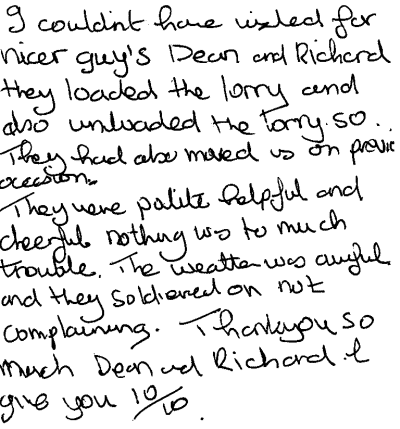 I couldn't have wished for
nicer guy's Dean and Richard
they loaded the lorry and
also unloaded the lorry so.
They had also moved us on previous
occasions.
They were polite helpful and
cheerful nothing was to much
trouble. The weather was awful
and they soldiered on not
complaining. Thankyou so
much Dean and Richard I
give you 10/10.